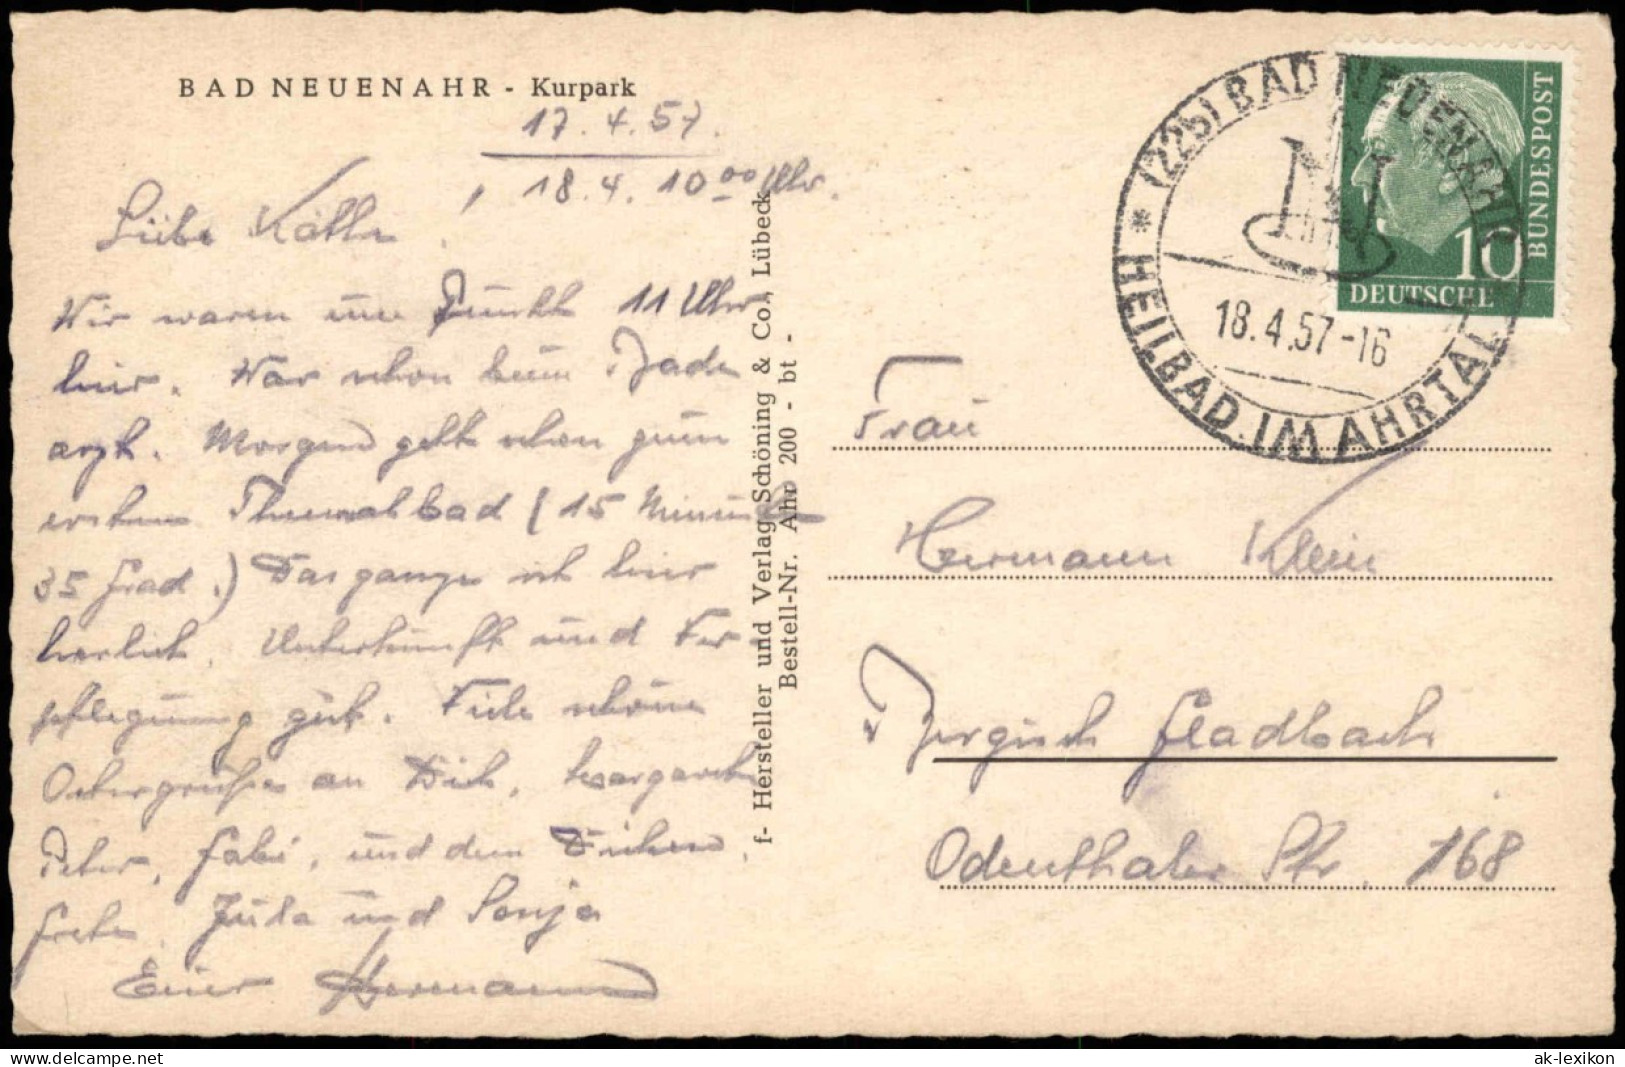 BAD NEUENAHR - Kurpark
17.4.57.
18.4. 10 00 Uhr.
Liebe Käthe,
Wir waren um Punkt 11 Uhr
hier. War schon beim Bade
arzt. Morgen geht schon zum
ersten Thermalbad (15 Minuten
35 Grad.) Das ganze ist hier
herrlich. Unterkunft und Ver-
pflegung gut. Viele schöne
Ostergrüße an Dich, Margarete
Peter, Gabi, und dem
Grete, Jula und Sonja
Euer Hermann
f- Hersteller und Verlag Schöning & Co., Lübeck
Bestell-Nr. Ahr 200 - bt -
(22b) BAD NEUENAHR
HEILBAD IM AHRTAL
18.4.57-16
DEUTSCHE
BUNDESPOST
10
Frau
Hermann Klein
Bergisch Gladbach
Odenthaler Str. 168
ak-lexikon.com